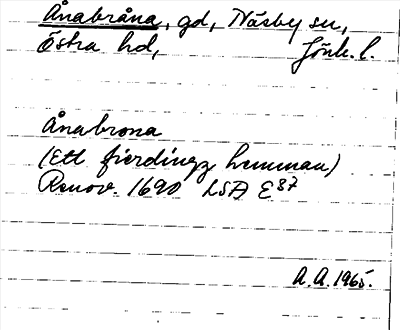 Ånabråna, gd, Näsby sn,
Östra hd, Jönk. l.
Ånabrona
(Ett fierdingz hemman)
Renov. 1690 LSA E87
A.A. 1965.